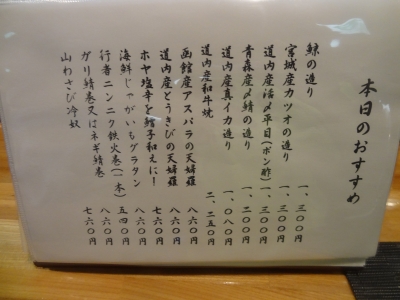 本日のおすすめ
鯨の造り 一、三〇〇円
宮城産カツオの造り 一、三〇〇円
道内産活〆平目(ポン酢) 一、三〇〇円
青森産〆鯖の造り 一、二〇〇円
道内産真イカ造り 一、〇八〇円
道内産和牛焼 二、二五〇円
函館産アスパラの天婦羅 八六〇円
道内産とうきびの天婦羅 八六〇円
ホヤ塩辛を鱈子和えに! 七六〇円
海鮮じゃがいもグラタン 八六〇円
行者ニンニク鉄火巻(一本) 五四〇円
ガリ鯖巻又はネギ鯖巻 八六〇円
山わさび冷奴 七六〇円